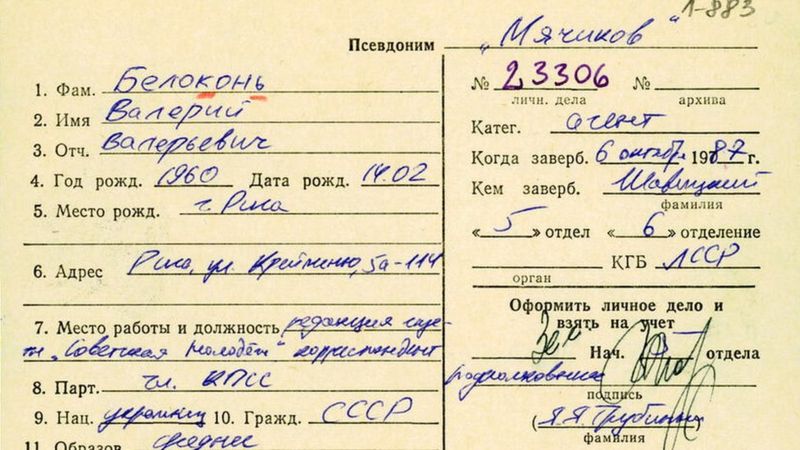 1-883
Псевдоним „Мячиков"
1. Фам. Белоконь
2. Имя Валерий
3. Отч. Валерьевич
4. Год рожд. 1960 Дата рожд. 14.02
5. Место рожд. г. Рига
6. Адрес Рига, ул. 5а-114
7. Место работы и должность редакция газе-
ты „Советская молодежь" корреспондент
8. Парт. чл. КПСС
9. Нац. украинец 10. Гражд. СССР
11. Образов. среднее
№ 23306 №
личн. дела архива
Катег. агент
Когда заверб. 6 октября 1987 г.
Кем заверб. Шавлицкий
фамилия
«5» отдел «6» отделение
КГБ ЛССР
орган
Оформить личное дело и
взять на учет
Зам Нач. 5 отдела
подполковник
подпись
(Я.Я. Трубиньш)
фамилия